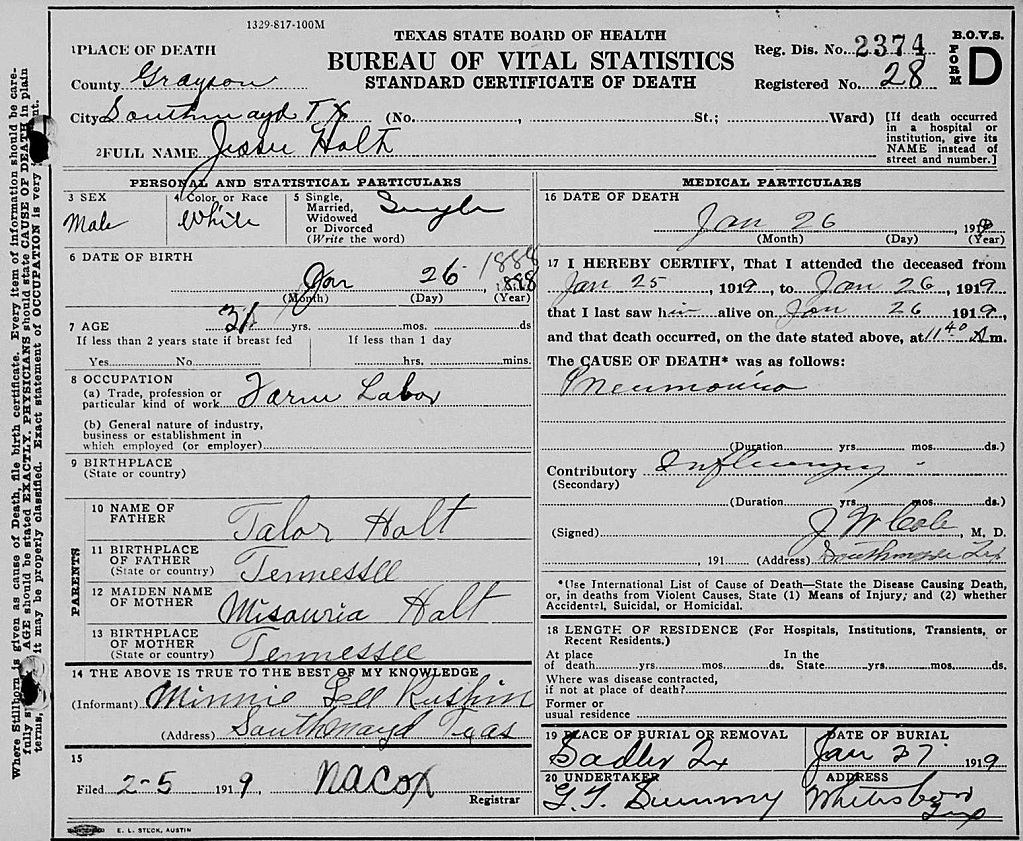 1329-817-100M
TEXAS STATE BOARD OF HEALTH
BUREAU OF VITAL STATISTICS
STANDARD CERTIFICATE OF DEATH
Reg. Dis. No. 2374
Registered No. 28
B.O.V.S.
FORM D
1 PLACE OF DEATH
County Grayson
City Southmayd Tx (No. , St.; Ward)
[If death occurred in a hospital or institution, give its NAME instead of street and number.]
2 FULL NAME Jessie Holt
PERSONAL AND STATISTICAL PARTICULARS
3 SEX
Male
4 Color or Race
White
5 Single, Married, Widowed or Divorced (Write the word)
Single
6 DATE OF BIRTH
Jan 26 1888
(Month) (Day) (Year)
7 AGE 31 yrs. mos. ds
If less than 2 years state if breast fed
Yes No
If less than 1 day
hrs. mins.
8 OCCUPATION
(a) Trade, profession or
particular kind of work Farm Labor
(b) General nature of industry,
business or establishment in
which employed (or employer)
9 BIRTHPLACE
(State or country)
PARENTS
10 NAME OF FATHER
Talor Holt
11 BIRTHPLACE OF FATHER
(State or country) Tennessee
12 MAIDEN NAME OF MOTHER
Misouria Holt
13 BIRTHPLACE OF MOTHER
(State or country) Tennessee
14 THE ABOVE IS TRUE TO THE BEST OF MY KNOWLEDGE
(Informant) Minnie Lee
(Address) Southmayd Texas
15
Filed 2-5 1919 Registrar
MEDICAL PARTICULARS
16 DATE OF DEATH
Jan 26, 1919
(Month) (Day) (Year)
17 I HEREBY CERTIFY, That I attended the deceased from
Jan 25, 1919, to Jan 26, 1919
that I last saw him alive on Jan 26 1919.
and that death occurred, on the date stated above, at 11 40 A m.
The CAUSE OF DEATH* was as follows:
Pneumonia
(Duration yrs. mos. ds.)
Contributory Influenza
(Secondary)
(Duration yrs. mos. ds.)
(Signed) J W Cole, M. D.
, 191 (Address) Southmayd Tex
*Use International List of Cause of Death—State the Disease Causing Death,
or, in deaths from Violent Causes, State (1) Means of Injury; and (2) whether
Accidental, Suicidal, or Homicidal.
18 LENGTH OF RESIDENCE (For Hospitals, Institutions, Transients, or
Recent Residents.)
At place of death yrs. mos. ds. In the State yrs. mos. ds.
Where was disease contracted,
if not at place of death?
Former or
usual residence
19 PLACE OF BURIAL OR REMOVAL
Sadler Tx
DATE OF BURIAL
Jan 27 1919
20 UNDERTAKER
ADDRESS
Whitesboro Tex
E. L. STECK, AUSTIN
Where Stillborn is given as cause of Death, file birth certificate. Every item of information should be care-
AGE should be stated EXACTLY. PHYSICIANS should state CAUSE OF DEATH in plain
it may be properly classified. Exact statement of OCCUPATION is very